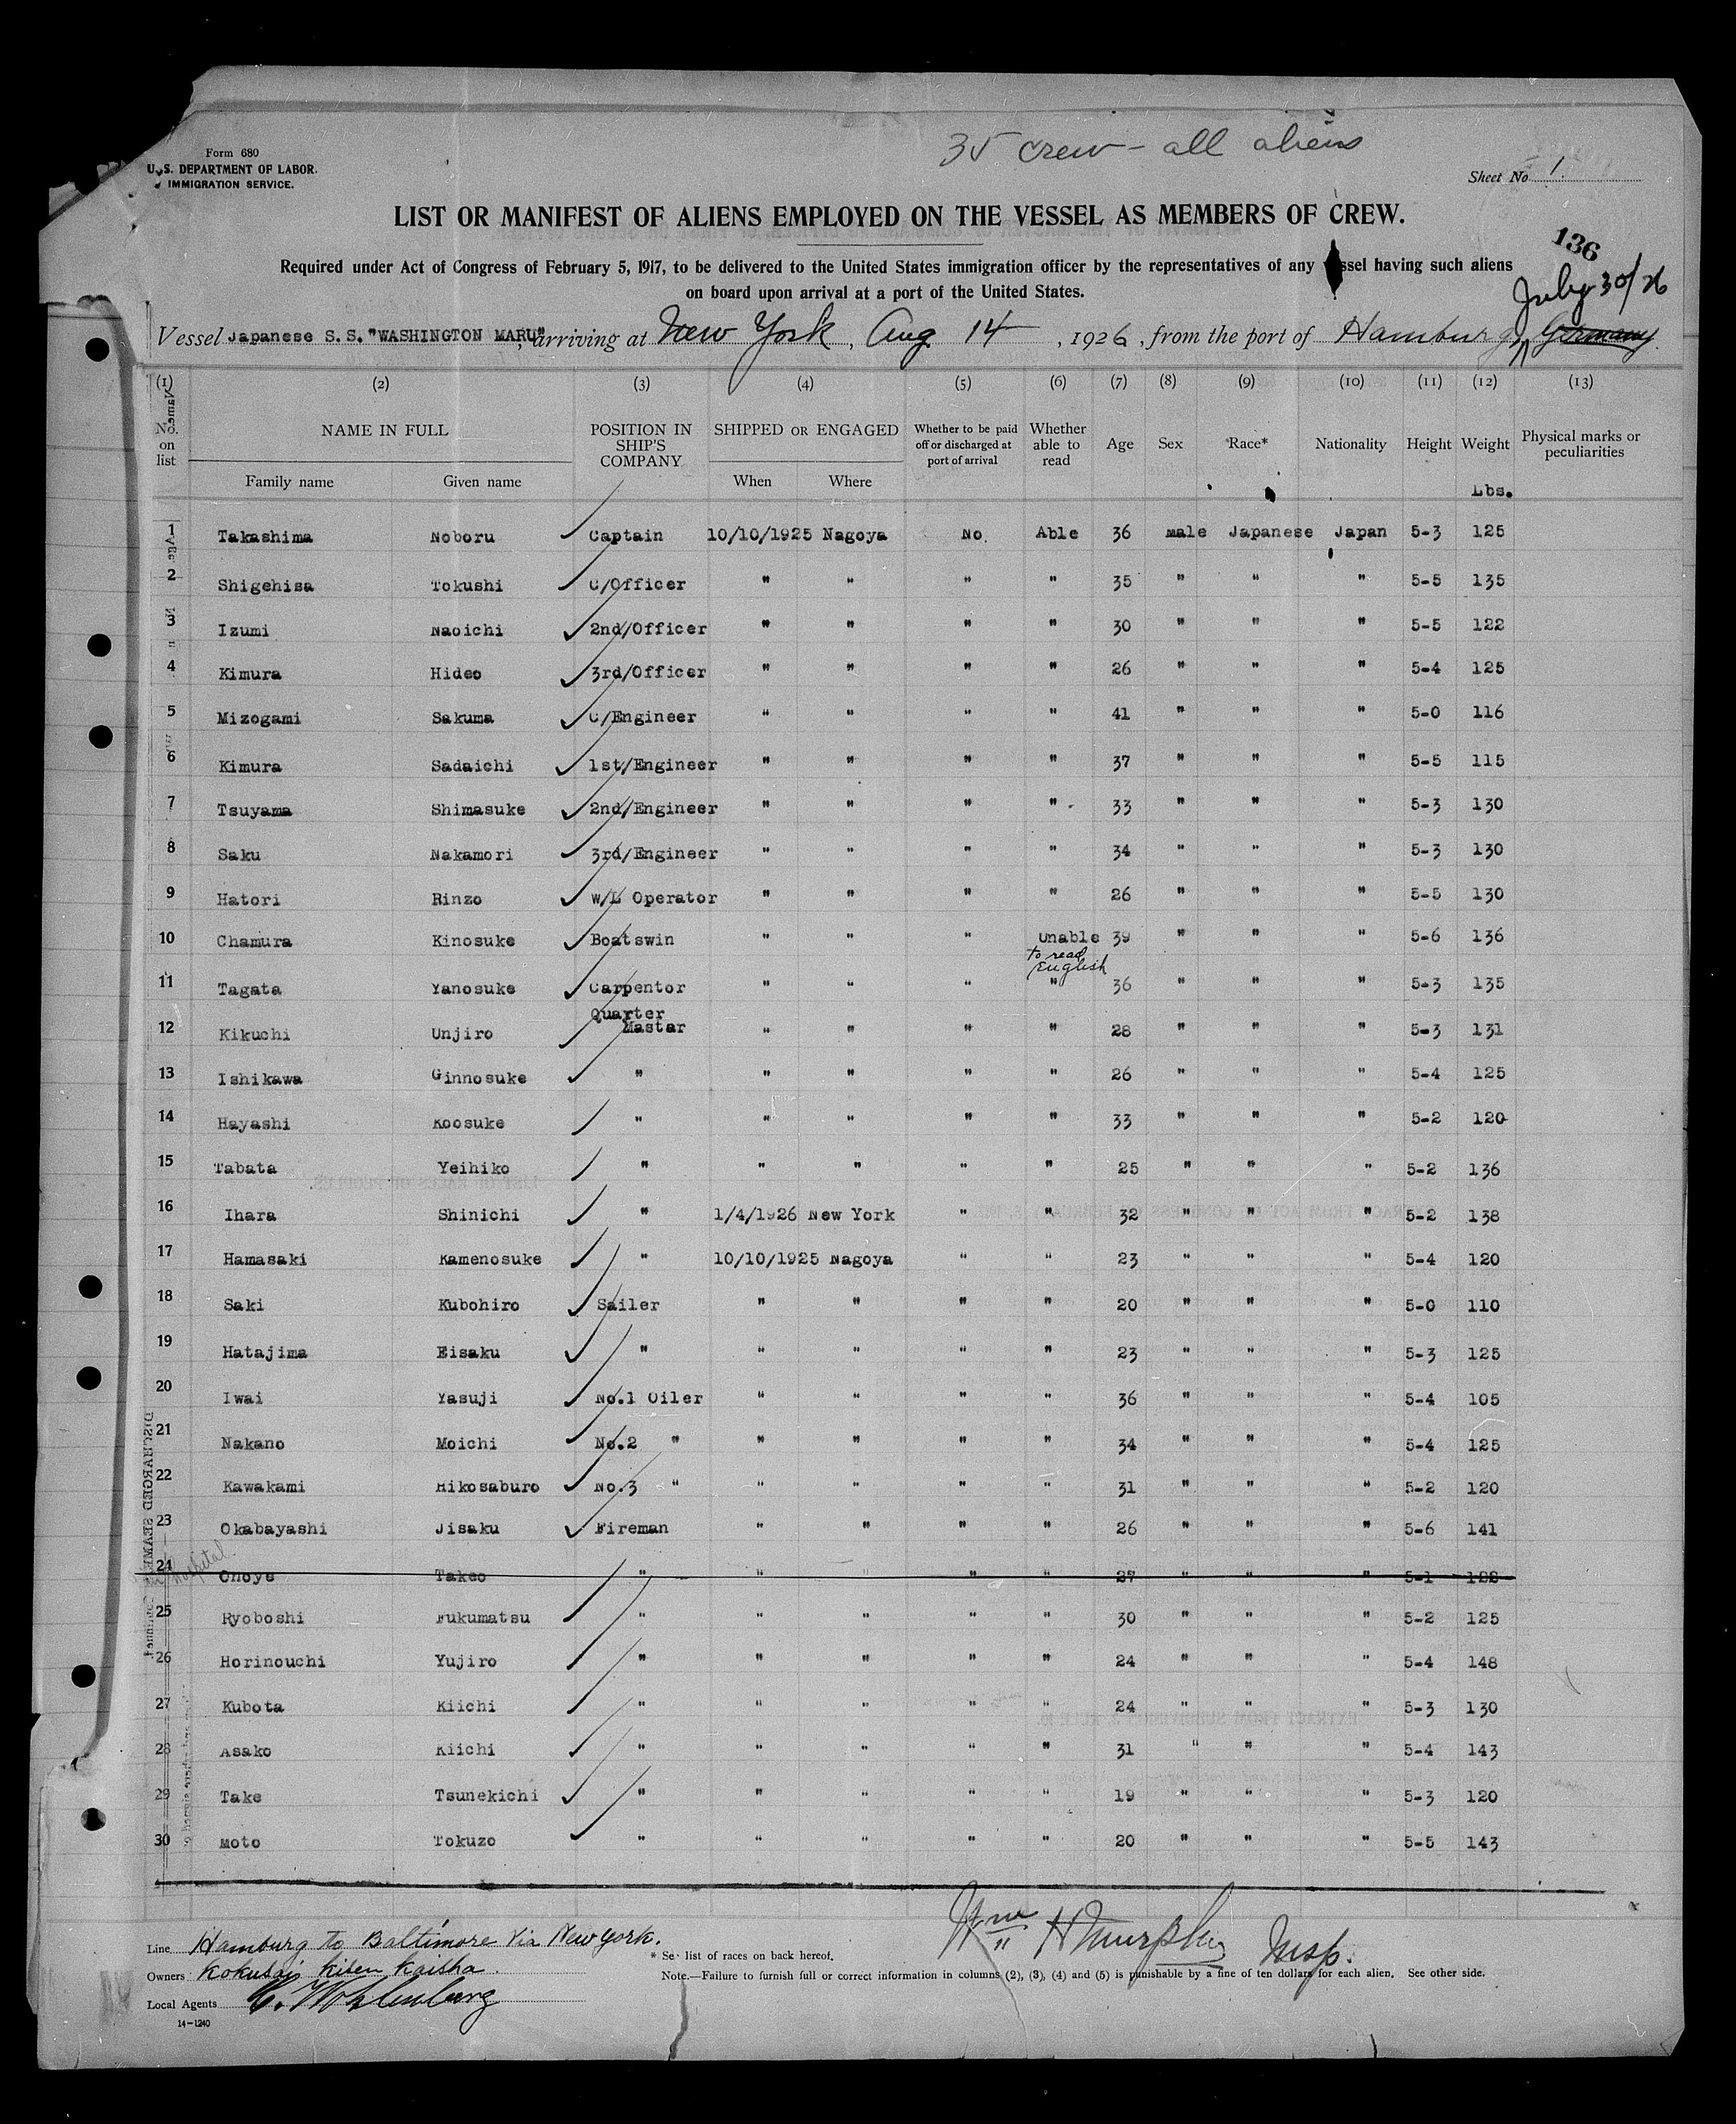 35 crew - all aliens
Form 680
U.S. DEPARTMENT OF LABOR.
IMMIGRATION SERVICE.
Sheet No 1.
LIST OR MANIFEST OF ALIENS EMPLOYED ON THE VESSEL AS MEMBERS OF CREW.
136
Required under Act of Congress of February 5, 1917, to be delivered to the United States immigration officer by the representatives of any vessel having such aliens
on board upon arrival at a port of the United States.
July 30/26
Vessel Japanese S.S. "WASHINGTON MARU", arriving at New York, Aug 14, 1926, from the port of Hamburg, Germany.
(1) (2) (3) (4) (5) (6) (7) (8) (9) (10) (11) (12) (13)
No. on list NAME IN FULL POSITION IN SHIP'S COMPANY SHIPPED OR ENGAGED Whether to be paid off or discharged at port of arrival Whether able to read Age Sex Race* Nationality Height Weight Physical marks or peculiarities
Family name Given name When Where
Lbs.
1 Takashima Noboru Captain 10/10/1925 Nagoya No. Able 36 male Japanese Japan 5-3 125
2 Shigehisa Tokushi C/Officer " " " " 35 " " " 5-5 135
3 Izumi Naoichi 2nd/Officer " " " " 30 " " " 5-5 122
4 Kimura Hideo 3rd/Officer " " " " 26 " " " 5-4 125
5 Mizogami Sakuma C/Engineer " " " " 41 " " " 5-0 116
6 Kimura Sadaichi 1st/Engineer " " " " 37 " " " 5-5 115
7 Tsuyama Shimasuke 2nd/Engineer " " " " 33 " " " 5-3 130
8 Saku Nakamori 3rd/Engineer " " " " 34 " " " 5-3 130
9 Hatori Rinzo W/L Operator " " " " 26 " " " 5-5 130
10 Chamura Kinosuke Boatswin " " " Unable 39 " " " 5-6 136
to read
English
11 Tagata Yanosuke Carpentor " " " " 36 " " " 5-3 135
12 Kikuchi Unjiro Quarter Mastar " " " " 28 " " " 5-3 131
13 Ishikawa Ginnosuke " " " " " 26 " " " 5-4 125
14 Hayashi Koosuke " " " " " 33 " " " 5-2 120
15 Tabata Yeihiko " " " " " 25 " " " 5-2 136
16 Ihara Shinichi " 1/4/1926 New York " " 32 " " " 5-2 138
17 Hamasaki Kamenosuke " 10/10/1925 Nagoya " " 23 " " " 5-4 120
18 Saki Kubohiro Sailer " " " " 20 " " " 5-0 110
19 Hatajima Eisaku " " " " " 23 " " " 5-3 125
20 Iwai Yasuji No.1 Oiler " " " " 36 " " " 5-4 105
21 Nakano Moichi No.2 " " " " " 34 " " " 5-4 125
22 Kawakami Hikosaburo No.3 " " " " " 31 " " " 5-2 120
23 Okabayashi Jisaku Fireman " " " " 26 " " " 5-6 141
in hospital
24 Onoye Takeo " " " " " 27 " " " 5-1 122
25 Ryoboshi Fukumatsu " " " " " 30 " " " 5-2 125
26 Horinouchi Yujiro " " " " " 24 " " " 5-4 148
27 Kubota Kiichi " " " " " 24 " " " 5-3 130
28 Asako Kiichi " " " " " 31 " " " 5-4 143
29 Take Tsunekichi " " " " " 19 " " " 5-3 120
30 Moto Tokuzo " " " " " 20 " " " 5-5 143
Line Hamburg to Baltimore via New York.
Wm H Murphy Insp.
* See list of races on back hereof.
Owners Kokusai Kisen Kaisha
Note.—Failure to furnish full or correct information in columns (2), (3), (4) and (5) is punishable by a fine of ten dollars for each alien. See other side.
Local Agents
14-1240